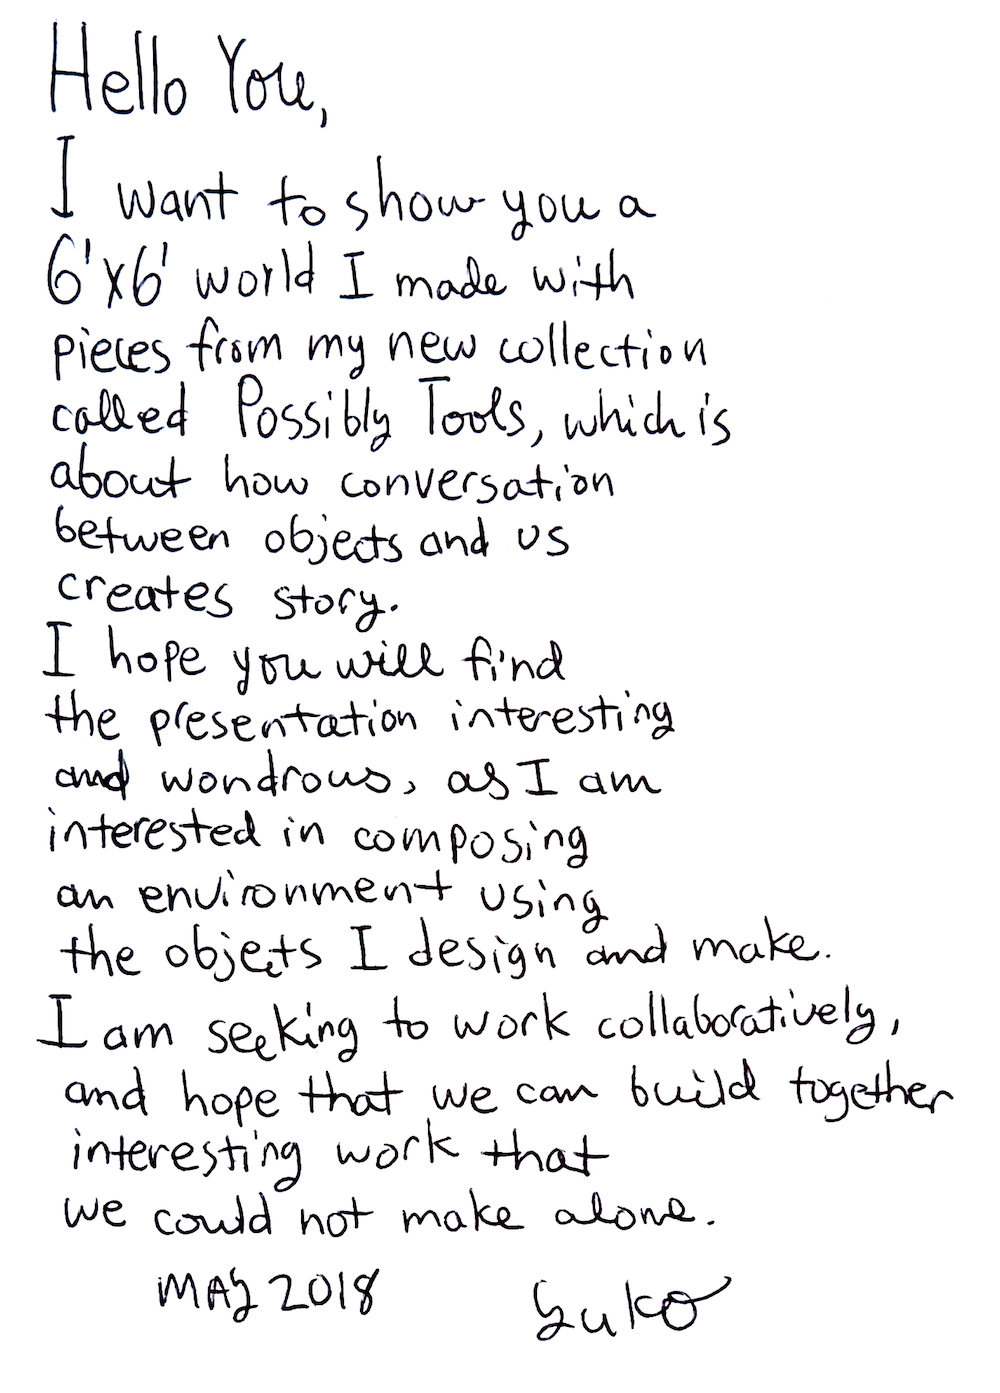 Hello You,
I want to show you a
6'x6' world I made with
pieces from my new collection
called Possibly Tools, which is
about how conversation
between objects and us
creates story.
I hope you will find
the presentation interesting
and wondrous, as I am
interested in composing
an environment using
the objects I design and make.
I am seeking to work collaboratively,
and hope that we can build together
interesting work that
we could not make alone.
MAY 2018 Yuko